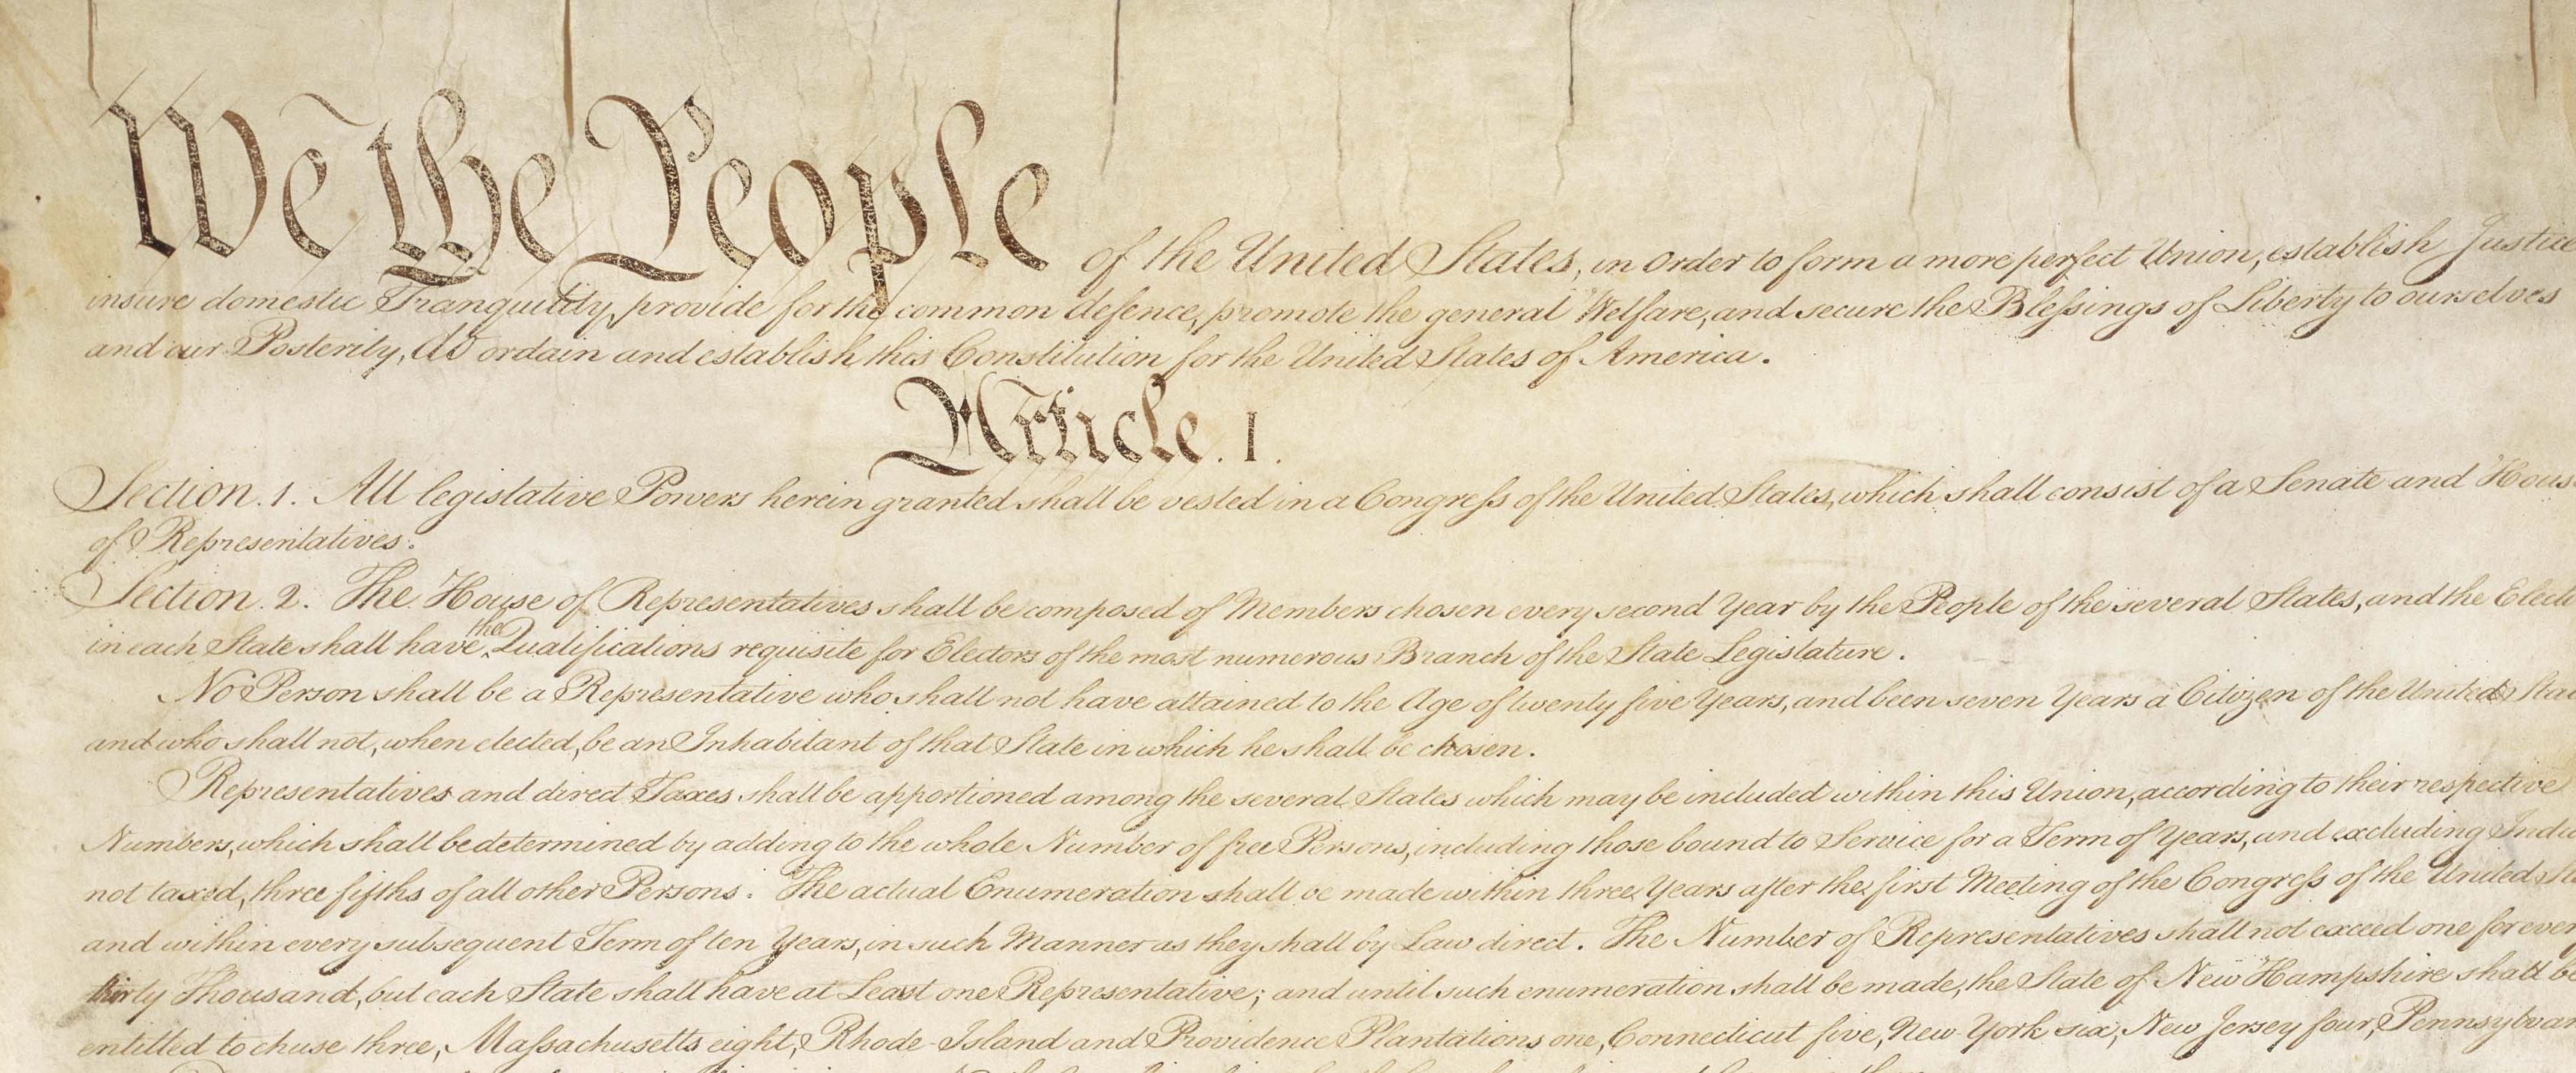 We the People of the United States, in Order to form a more perfect Union, establish Justice
insure domestic Tranquility, provide for the common defence, promote the general Welfare, and secure the Blessings of Liberty to ourselves
and our Posterity, do ordain and establish this Constitution for the United States of America.
Article. I.
Section. 1. All legislative Powers herein granted shall be vested in a Congress of the United States, which shall consist of a Senate and Hous
of Representatives.
Section. 2. The House of Representatives shall be composed of Members chosen every second Year by the People of the several States, and the Elect
in each State shall have the Qualifications requisite for Electors of the most numerous Branch of the State Legislature.
No Person shall be a Representative who shall not have attained to the Age of twenty five Years, and been seven Years a Citizen of the United Stat
and who shall not, when elected, be an Inhabitant of that State in which he shall be chosen.
Representatives and direct Taxes shall be apportioned among the several States which may be included within this Union, according to their respective
Numbers, which shall be determined by adding to the whole Number of free Persons, including those bound to Service for a Term of Years, and excluding India
not taxed, three fifths of all other Persons. The actual Enumeration shall be made within three Years after the first Meeting of the Congress of the United St
and within every subsequent Term of ten Years, in such Manner as they shall by Law direct. The Number of Representatives shall not exceed one for ever
thirty Thousand, but each State shall have at Least one Representative; and until such enumeration shall be made, the State of New Hampshire shall be
entitled to chuse three, Massachusetts eight, Rhode-Island and Providence Plantations one, Connecticut five, New-York six, New Jersey four, Pennsylvan